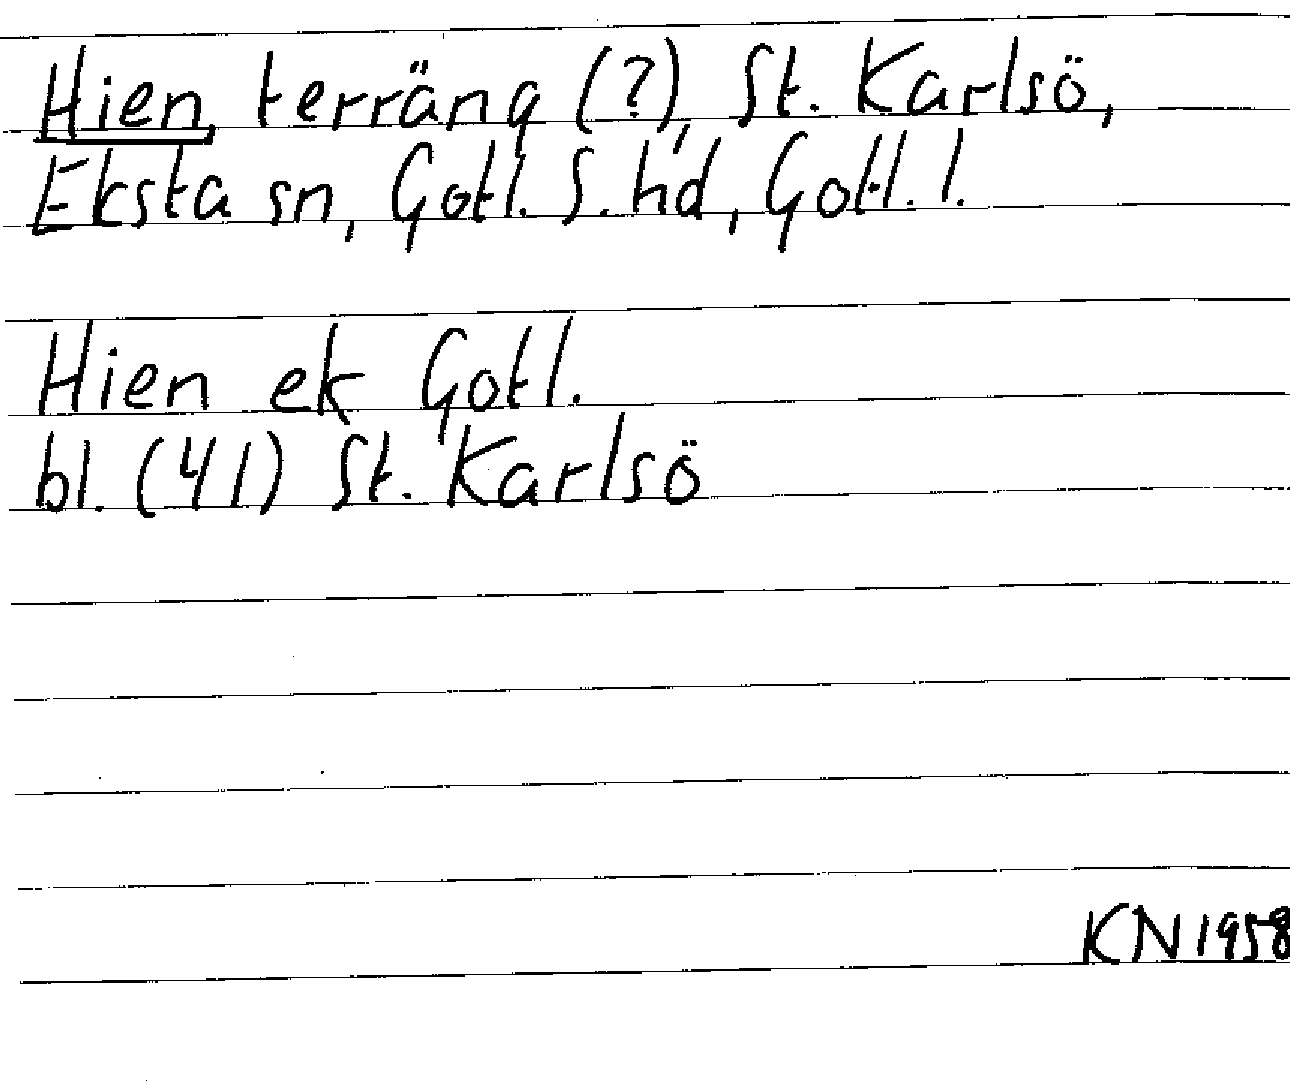 Hien, terräng (?), St. Karlsö,
Eksta sn, Gotl. S. hd, Gotl. l.
Hien ek Gotl.
bl. (41) St. Karlsö
KN 1958